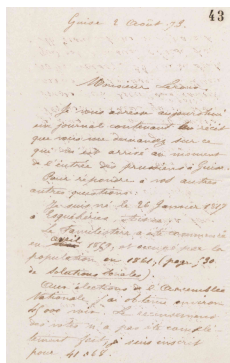 43
Guise 2 août 73.
Monsieur
Je vous adresse aujourd'hui
un journal contenant le récit
que vous me demandez sur ce
qui s'est arrivé au moment
de l'entrée des prussiens à Guise.
Pour répondre à vos autres
autres questions:
Je suis né le 26 Janvier 1817
à Esquéhéries, Aisne.
Le familistère a été commencé
en avril 1859, et occupé par la
population en 1861, (page 130
de solutions sociales).
Aux élections de l'Assemblée
Nationale, j'ai obtenu environ
voix. Le recensement
des votes n'a pas été complè-
tement fait, je suis inscrit
pour